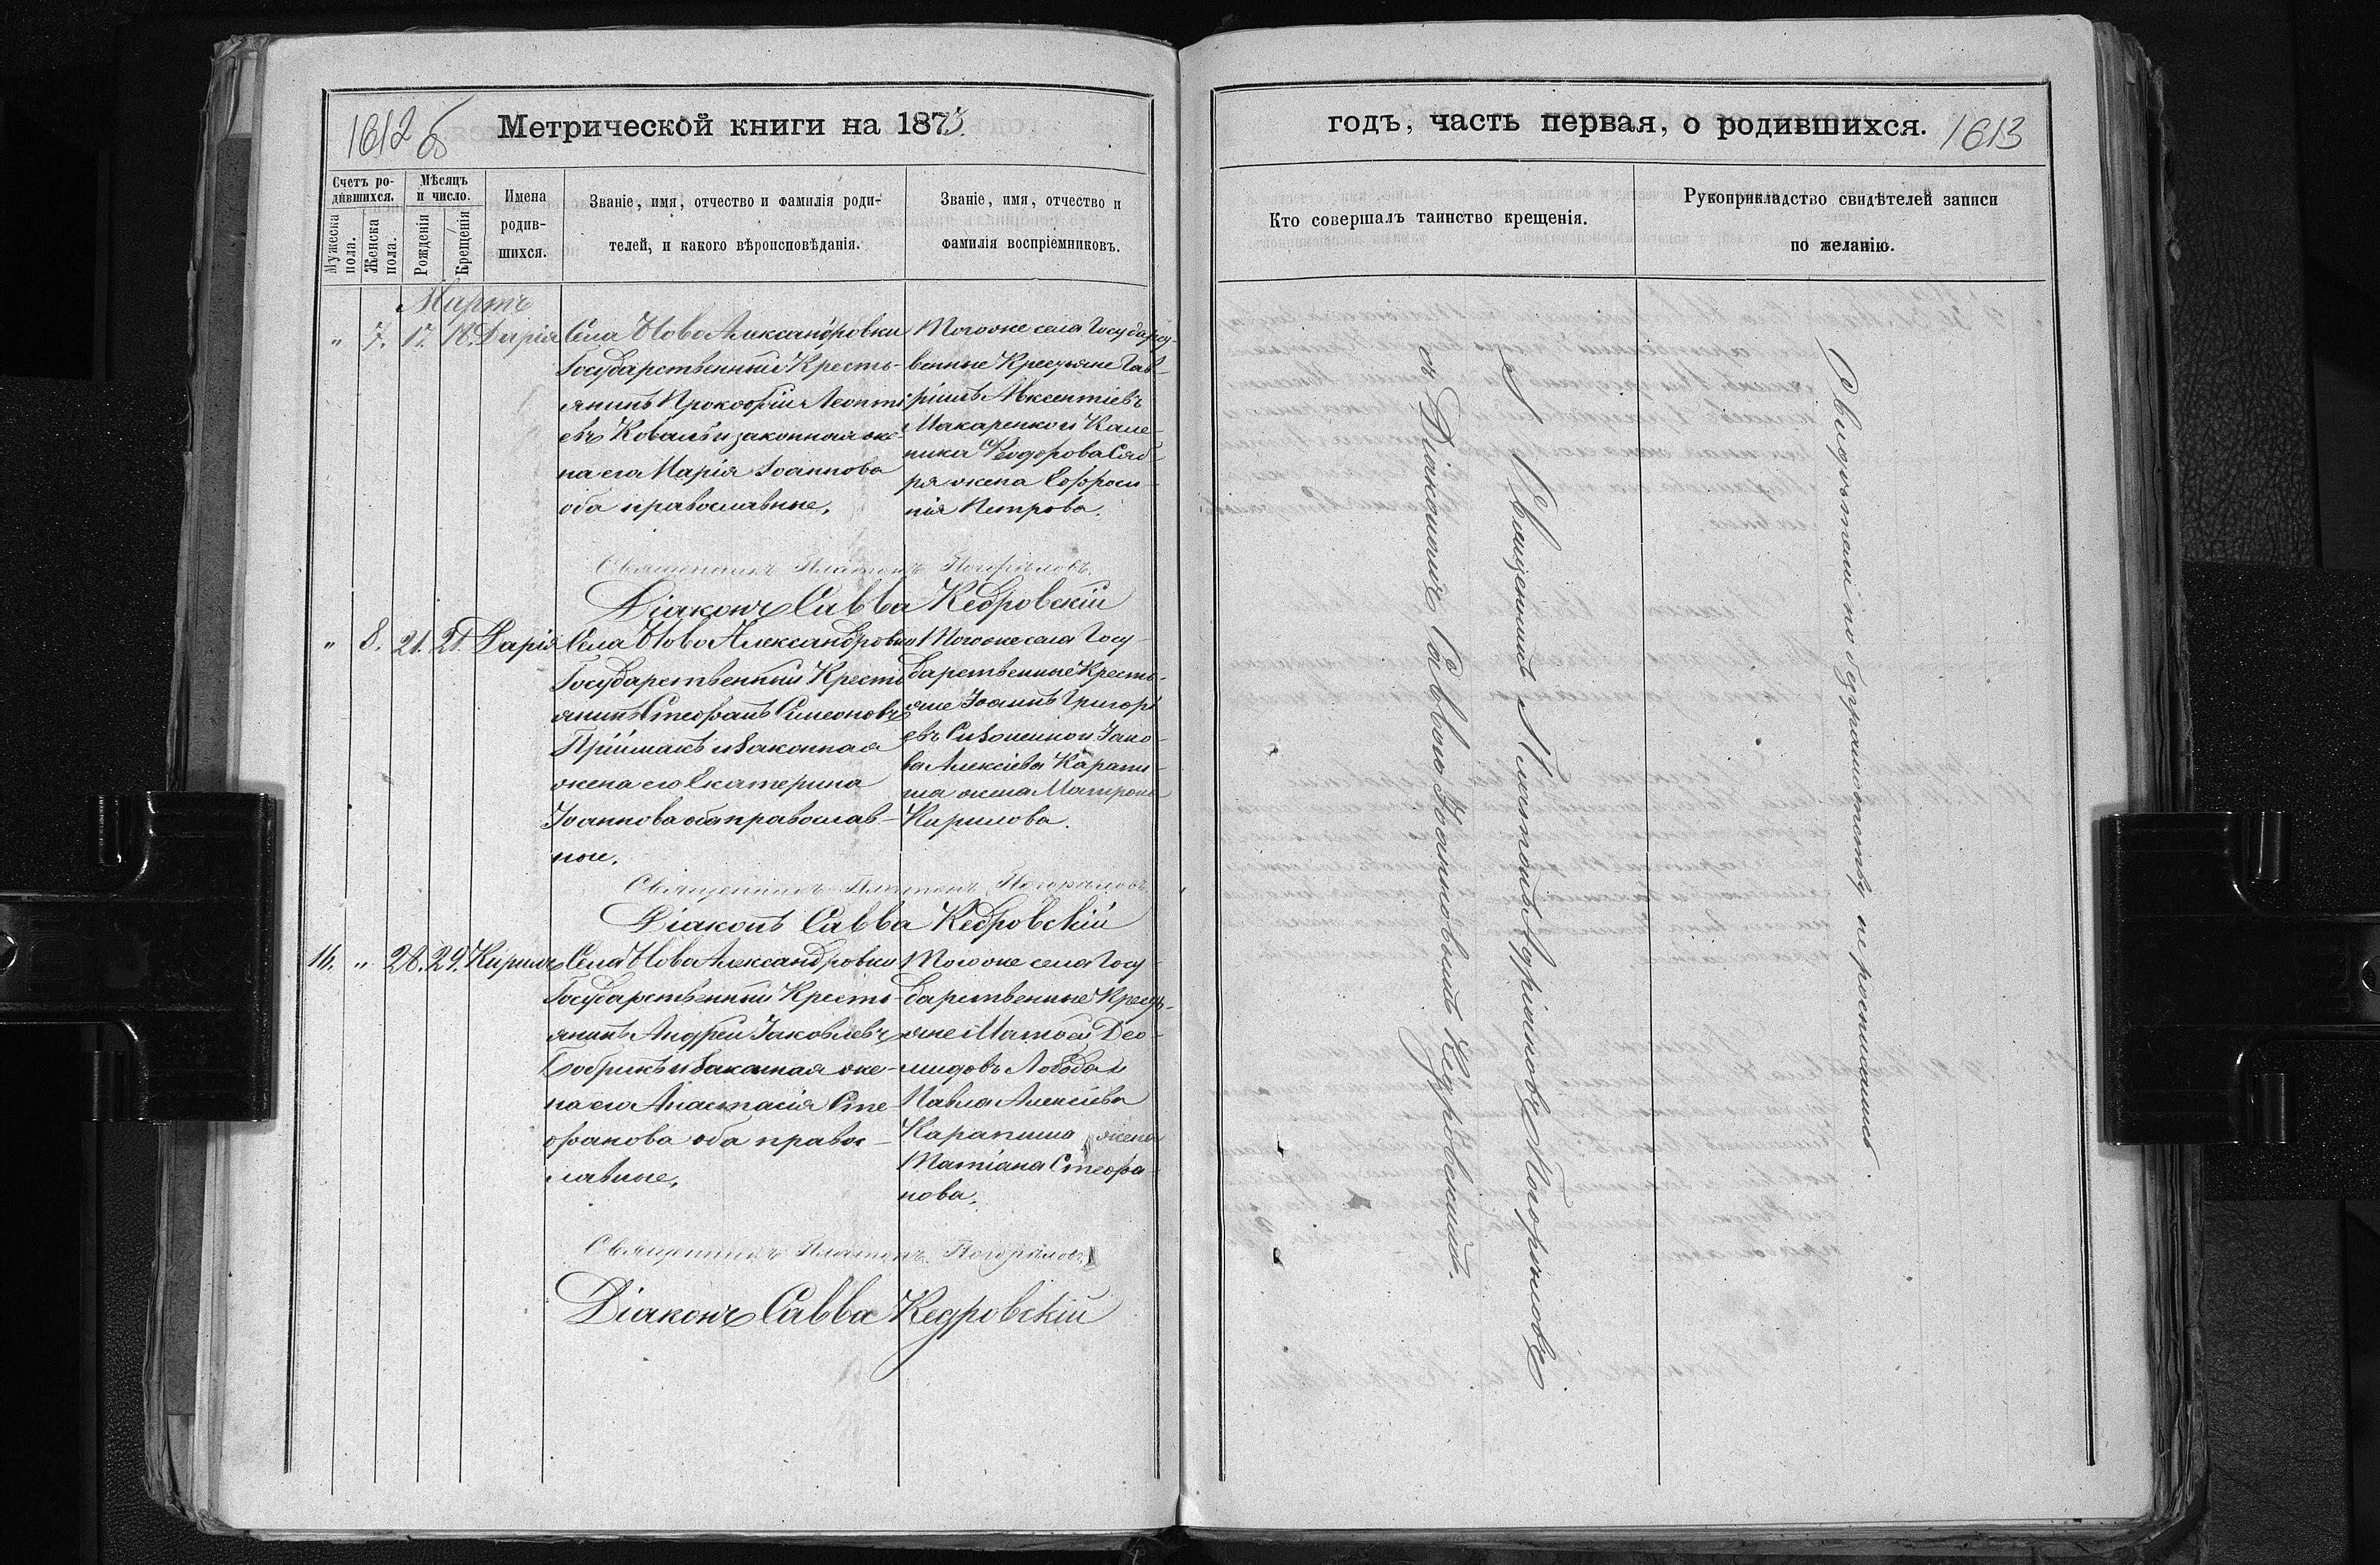 1612 б
Метрической книги на 1873.
Счетъ ро-
дившихся.
Мужеска пола.
Женска пола.
Мѣсяцъ
и число.
Рожденія
Крещенія
Имена
родив-
шихся.
Званіе, имя, отчество и фамилія роди-
телей, и какого вѣроисповѣданія.
Званіе, имя, отчество и
фамилія воспріемниковъ.
Мартъ
" 7. 17. 18. Дарія
Села Ново Александровки
Государственный Кресть-
янинъ Прокофій Леонті
евъ Коваль и законная же
на его Марія Іоаннова
оба православные.
Тогоже села Государст-
венные Крестьяне Гав-
ріилъ Авксентіевъ
Макаренко и Кале-
ника Ѳеодорова Сяб-
ря жена Ефроси-
нія Петрова.
Священникъ Платонъ Погорѣловъ.
Діаконъ Савва Кедровскій
" 8. 21. 21. Дарія
Села Ново Александровки
Государственный Кресть
янинъ Стефанъ Симеоновъ
Пріймакъ и законная
жена его Екатерина
Іоаннова оба православ-
ные.
Тогоже села Госу-
дарственные Кресть-
яне Іоаннъ Григорі
евъ и Іако-
ва Алексіева Карапы-
ша жена Матрона
Кирилова.
Священникъ Платонъ Погорѣловъ
Діаконъ Савва Кедровскій
14. " 28. 29. Кирилъ
Села Ново Александровки
Государственный Кресть-
янинъ Андрей Іаковлевъ
Бобрикъ и законная же-
на его Анастасія Сте-
фанова оба право-
славные.
Тогоже села Госу-
дарственные Кресть-
яне Матѳей Део-
мидовъ Лобода и
Павла Алексіева
Карапыша жена
Татіана Стефа-
нова.
Священникъ Платонъ Погорѣловъ
Діаконъ Савва Кедровскій
годъ, часть первая, о родившихся.
1613
Кто совершалъ таинство крещенія.
Рукоприкладство свидѣтелей записи
по желанію.
Священникъ Платонъ Адріановъ Погорѣловъ
съ Діакономъ Саввою Іоанновымъ Кедровскимъ.
Свидѣтели по безграмотству не росписались